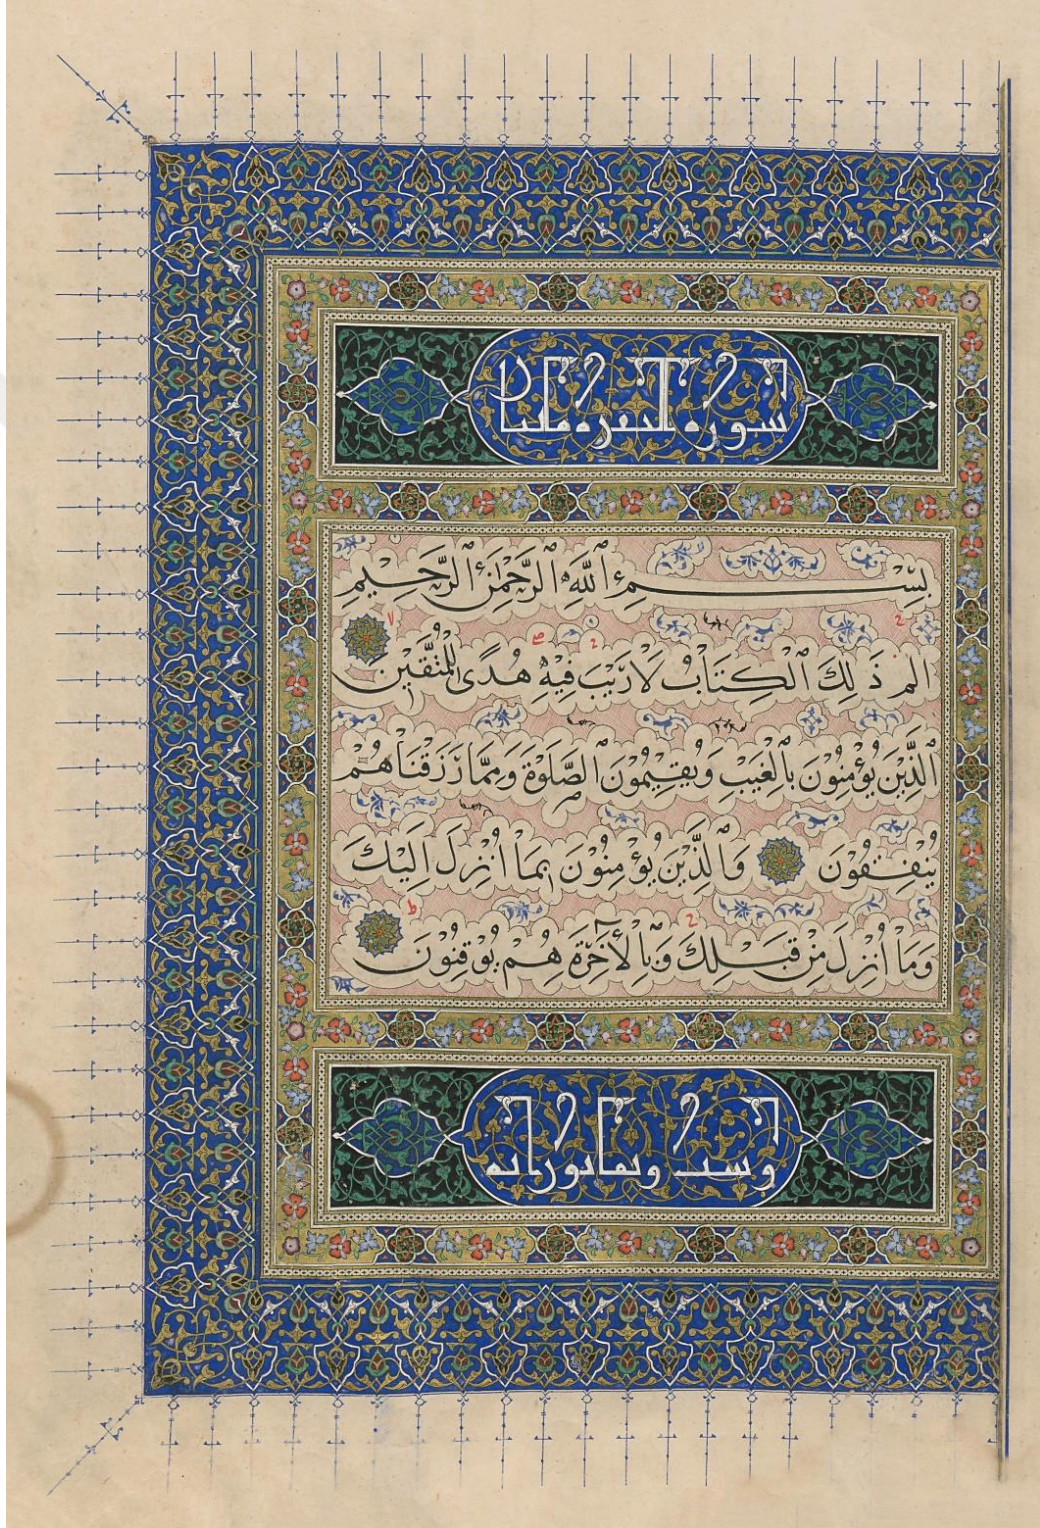 سورة البقرة مائتان
بِسْمِ ٱللَّهِ ٱلرَّحْمٰنِ ٱلرَّحِيمِ
الم ذَلِكَ ٱلْكِتَابُ لَا رَيْبَ فِيهِ هُدًى لِلْمُتَّقِينَ
ٱلَّذِينَ يُؤْمِنُونَ بِٱلْغَيْبِ وَيُقِيمُونَ ٱلصَّلَوٰةَ وَمِمَّا رَزَقْنَاهُمْ
يُنْفِقُونَ وَٱلَّذِينَ يُؤْمِنُونَ بِمَا أُنْزِلَ اِلَيْكَ
وَمَا أُنْزِلَ مِنْ قَبْلِكَ وَبِٱلْأَخِرَةِ هُمْ يُوقِنُونَ
وست وثمانون اية